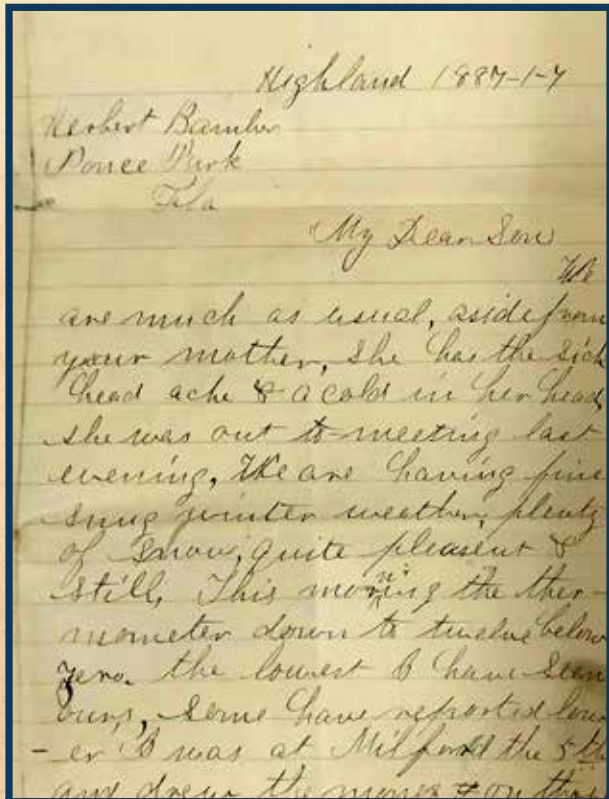 Highland 1887-1-7
Herbert Bamber
Ponce Park
Fla
My Dear Son
We
are much as usual, aside from
your mother, she has the sick
head ache & a cold in her head,
she was out to meeting last
evening, We are having fine
snug winter weather, plenty
of snow, quite pleasent &
still, This morning the ther-
mometer down to twelve below
zero. the lowest I have seen
ours, some have reported low-
er I was at Milford the 5th
and drew the money on